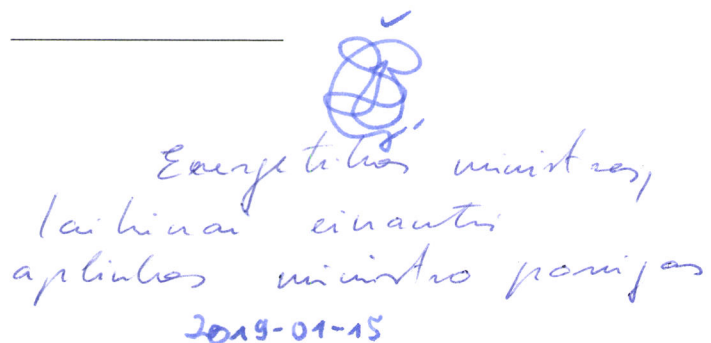 Energetikos ministras,
laikinai einantis
aplinkos ministro pareigas
2019-01-15